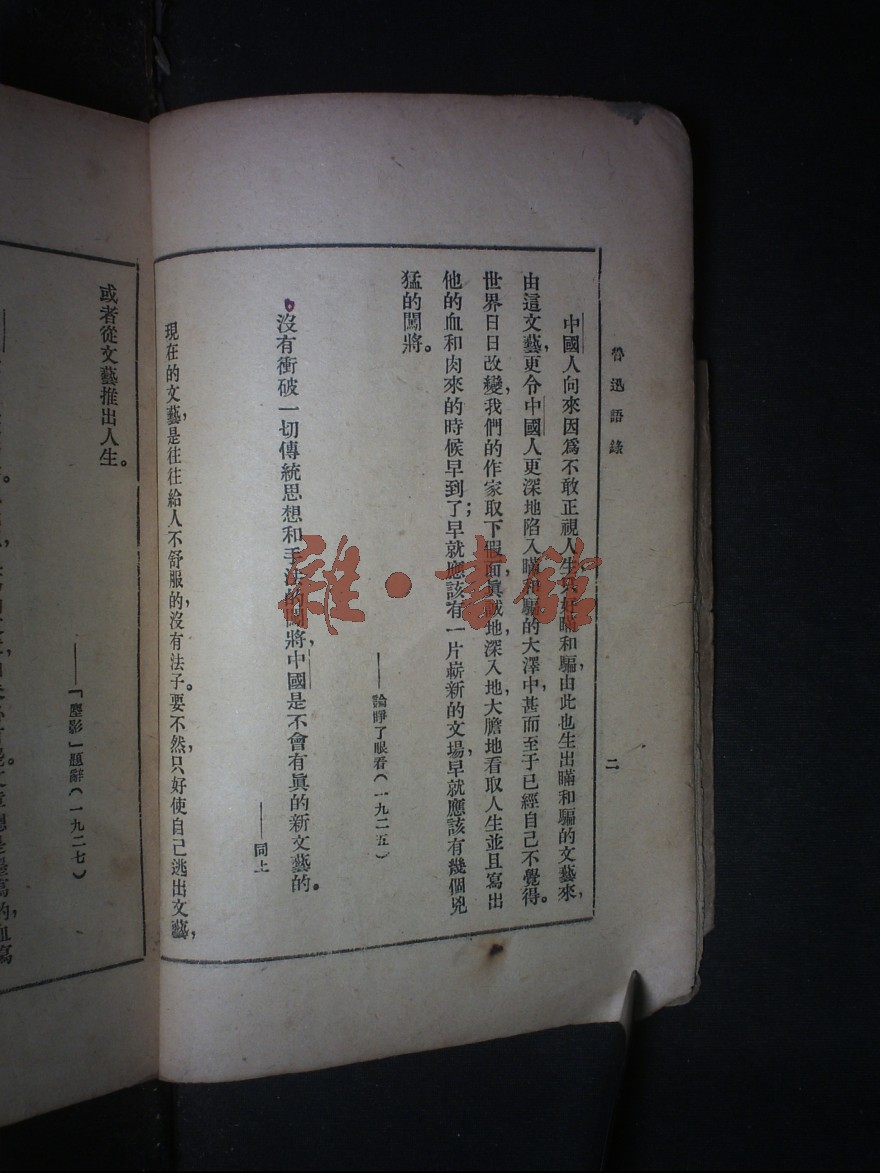 魯迅語錄
二
中國人向來因爲不敢正視人生,只好瞞和騙,由此也生出瞞和騙的文藝來,
由這文藝,更令中國人更深地陷入瞞和騙的大澤中,甚而至于已經自己不覺得。
世界日日改變,我們的作家取下假面,眞誠地,深入地,大膽地看取人生並且寫出
他的血和肉來的時候早到了;早就應該有一片嶄新的文場,早就應該有幾個兇
猛的闖將。
——論睜了眼看(一九二五)
沒有衝破一切傳統思想和手法的闖將,中國是不會有眞的新文藝的。
——同上
現在的文藝,是往往給人不舒服的,沒有法子。要不然,只好使自己逃出文藝,
或者從文藝推出人生。
——「塵影」題辭(一九二七)
雜·書館